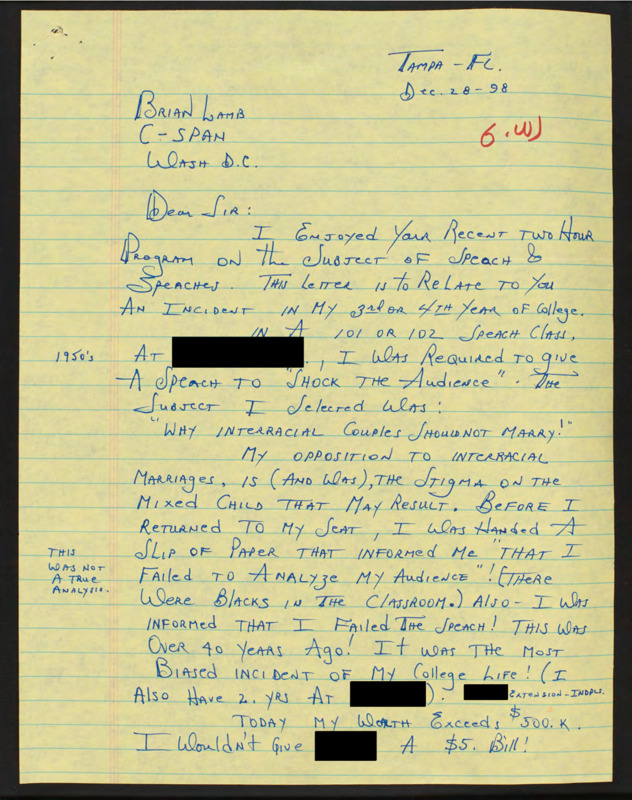 TAMPA - FL.
Dec. 28-98
6.W)
BRIAN LAMB
C-SPAN
WASH D.C.
Dear SIR:
I ENJOYED YOUR RECENT TWO HOUR
PROGRAM ON the SUBJECT OF SPEACH &
SPEACHES. THIS LETTER IS to RELATE TO YOU
AN INCIDENT IN MY 3rd OR 4TH YEAR OF College.
IN A 101 OR 102 SPEACH CLASS,
1950's AT , I WAS REQUIRED TO GIVE
A SPEACH TO "SHOCK THE AUDIENCE". THE
SUBJECT I SELECTED WAS:
"WHY INTERRACIAL COUPLES SHOULD NOT MARRY!"
MY OPPOSITION TO INTERRACIAL
MARRIAGES, IS (AND WAS), THE STIGMA ON THE
MIXED CHILD THAT MAY RESULT. BEFORE I
RETURNED TO MY SEAT, I WAS HANDED A
SLIP OF PAPER THAT INFORMED ME "THAT I
FAILED TO ANALYZE MY AUDIENCE"! (THERE
WERE BLACKS IN THE CLASSROOM.) ALSO- I WAS
INFORMED THAT I FAILED THE SPEACH! THIS WAS
OVER 40 YEARS AGO! IT WAS THE MOST
BIASED INCIDENT OF MY COLLEGE LIFE! (I
ALSO HAVE 2. YRS AT ). EXTENSION-INDPLS.
TODAY MY WORTH EXCEEDS $500.K.
I WOULDN'T GIVE A $5. BILL!
THIS
WAS NOT
A TRUE
ANALYSIS.